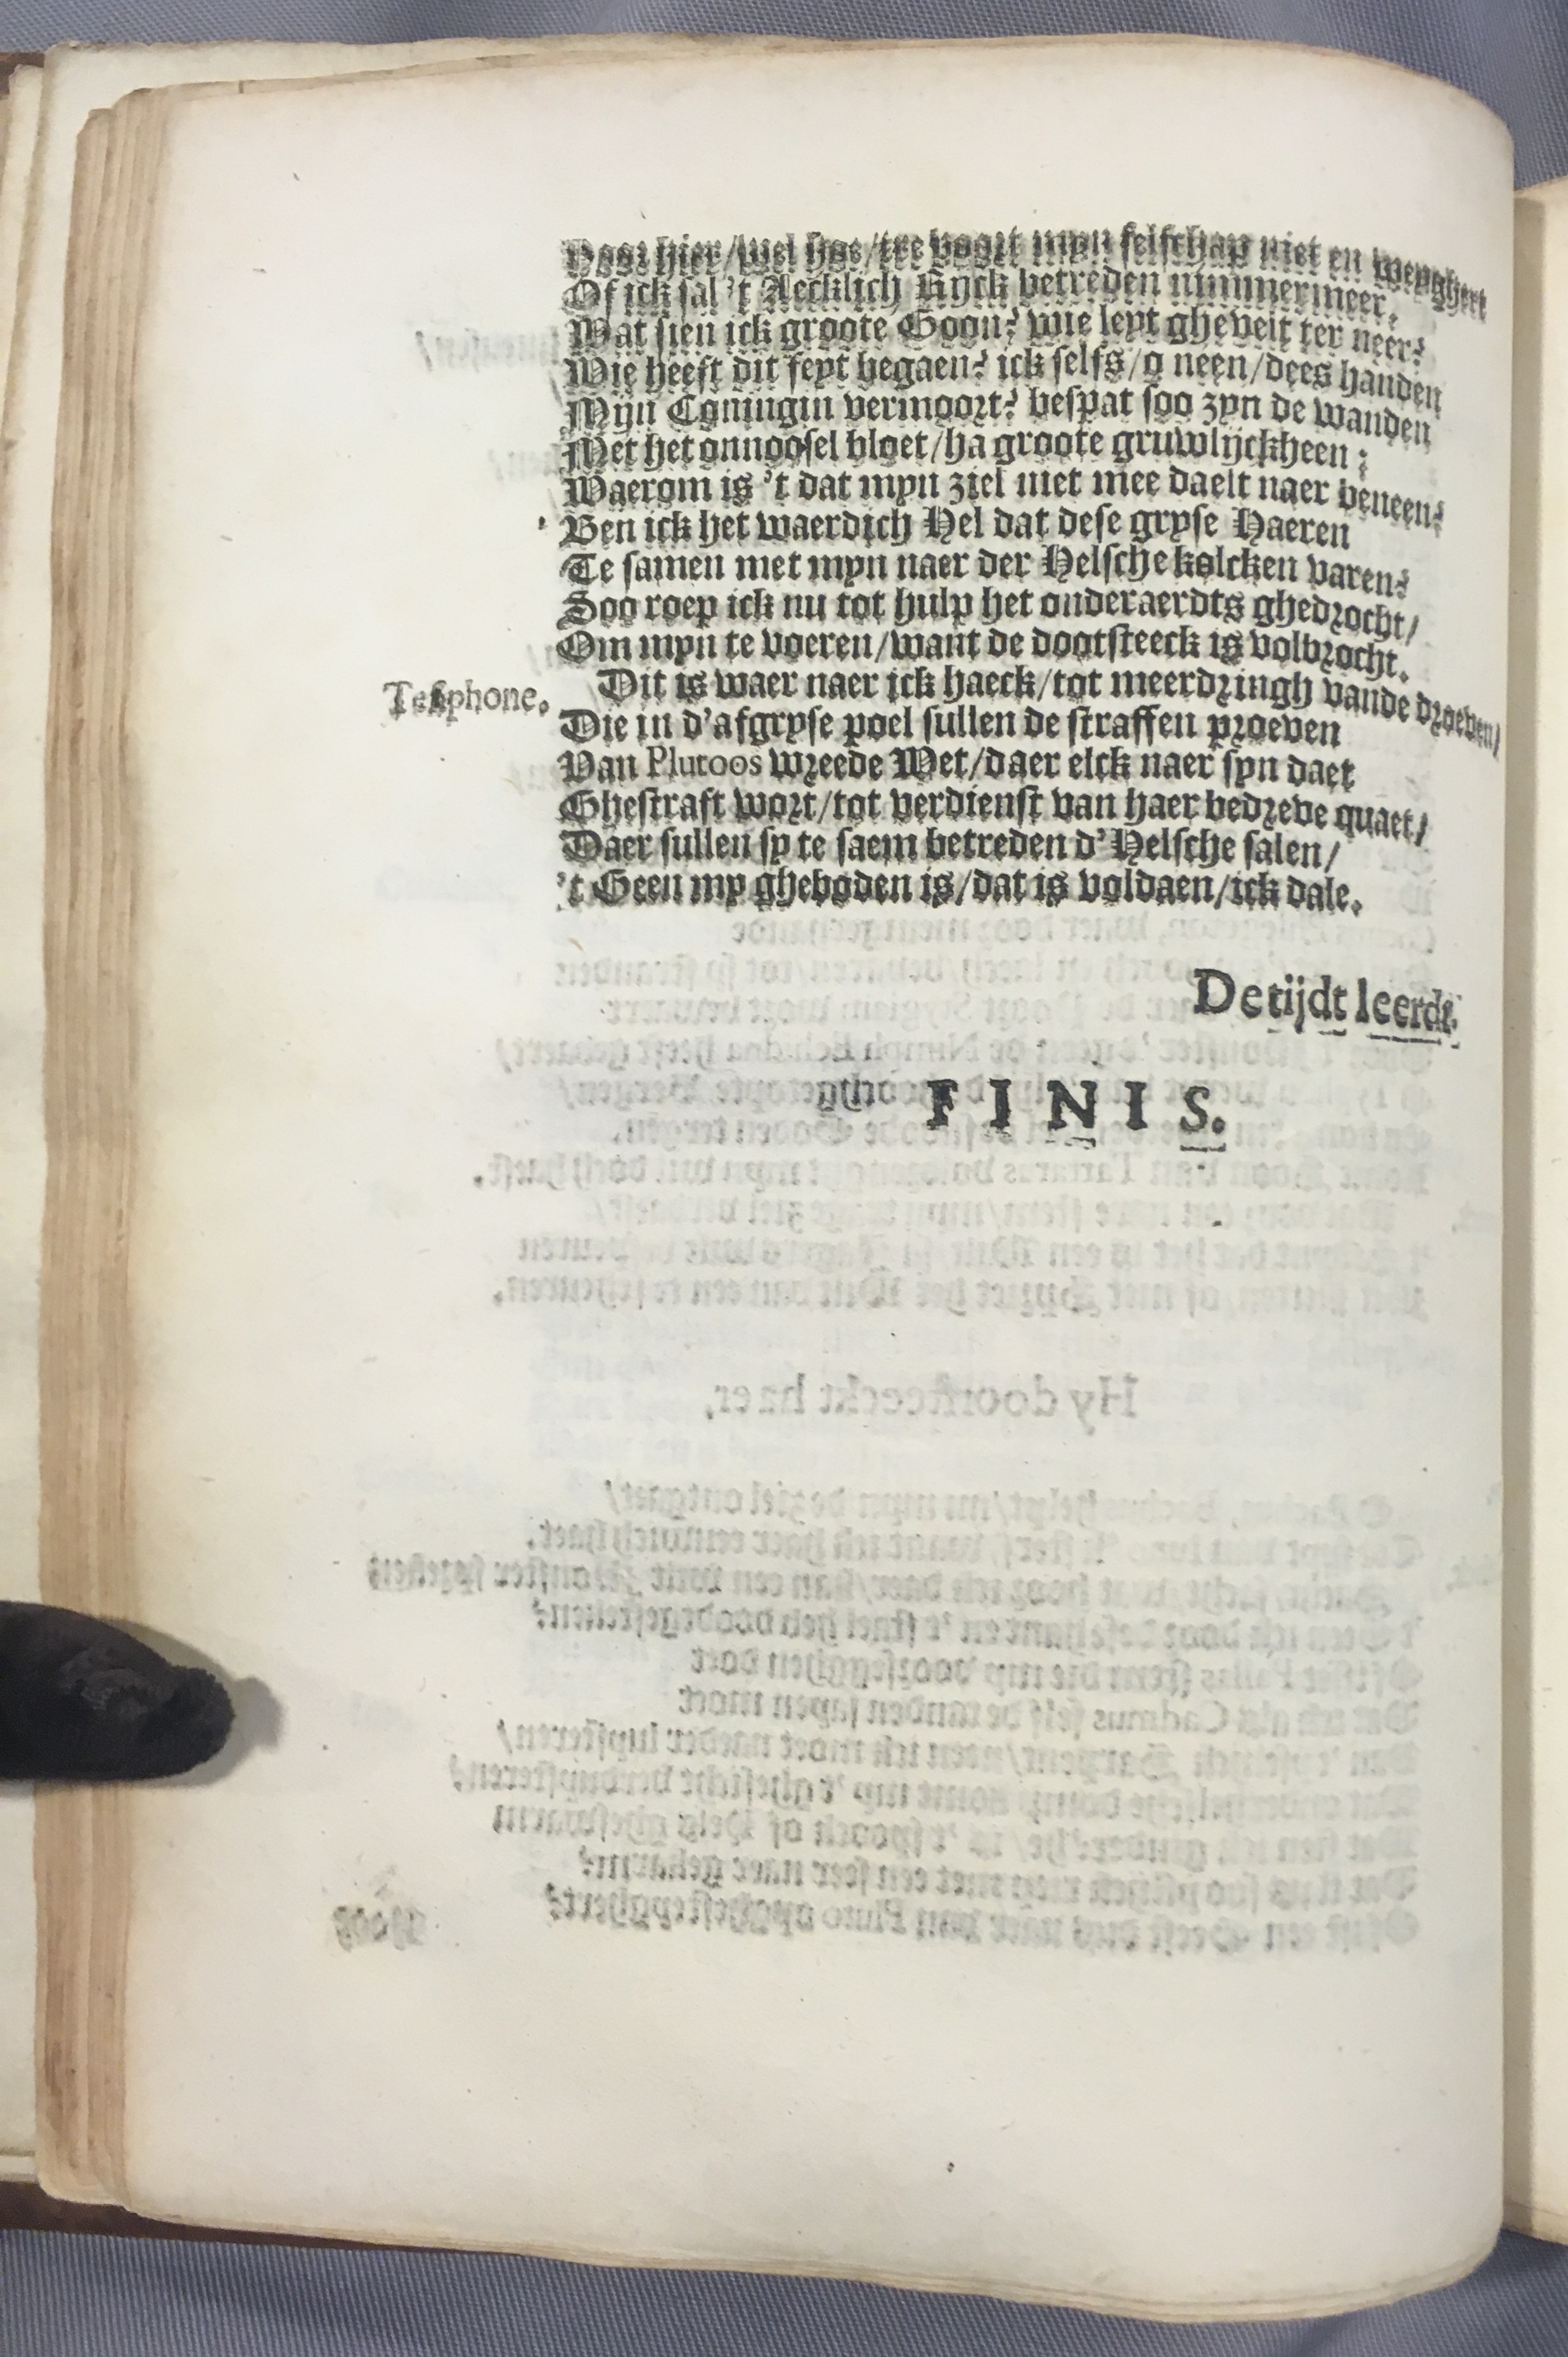 Voor hier/wel hoe/tre voort mijn selschap niet en weyghert
Of ick sal 't Aecklich Rijck betreden nimmermeer.
Wat sien ick groote Goon? wie leyt ghevelt ter neer?
Wie heeft dit feyt begaen? ick selfs/o neen/dees handen
Mijn Coningin vermoort? bespat soo zyn de wanden
Met het onnoosel bloet/ha groote gruwlijckheen;
Waerom is 't dat myn ziel niet mee daelt naer beneen?
Ben ick het waerdich Hel dat dese gryse Haeren
Te samen met myn naer der Helsche kolcken varen?
Soo roep ick nu tot hulp het onderaerdts ghedrocht/
Om myn te voeren/want de dootsteeck is volbrocht.
Tesiphone. Dit is waer naer ick haeck/tot meerdringh vande droeven/
Die in d'afgryse poel sullen de straffen proeven
Van Plutoos wreede Wet/daer elck naer syn daet
Ghestraft wort/tot verdienst van haer bedreve quaet/
Daer sullen sy te saem betreden d'Helsche salen/
't Geen my gheboden is/dat is voldaen/ick dale.
De tijdt leerdt.
FINIS.